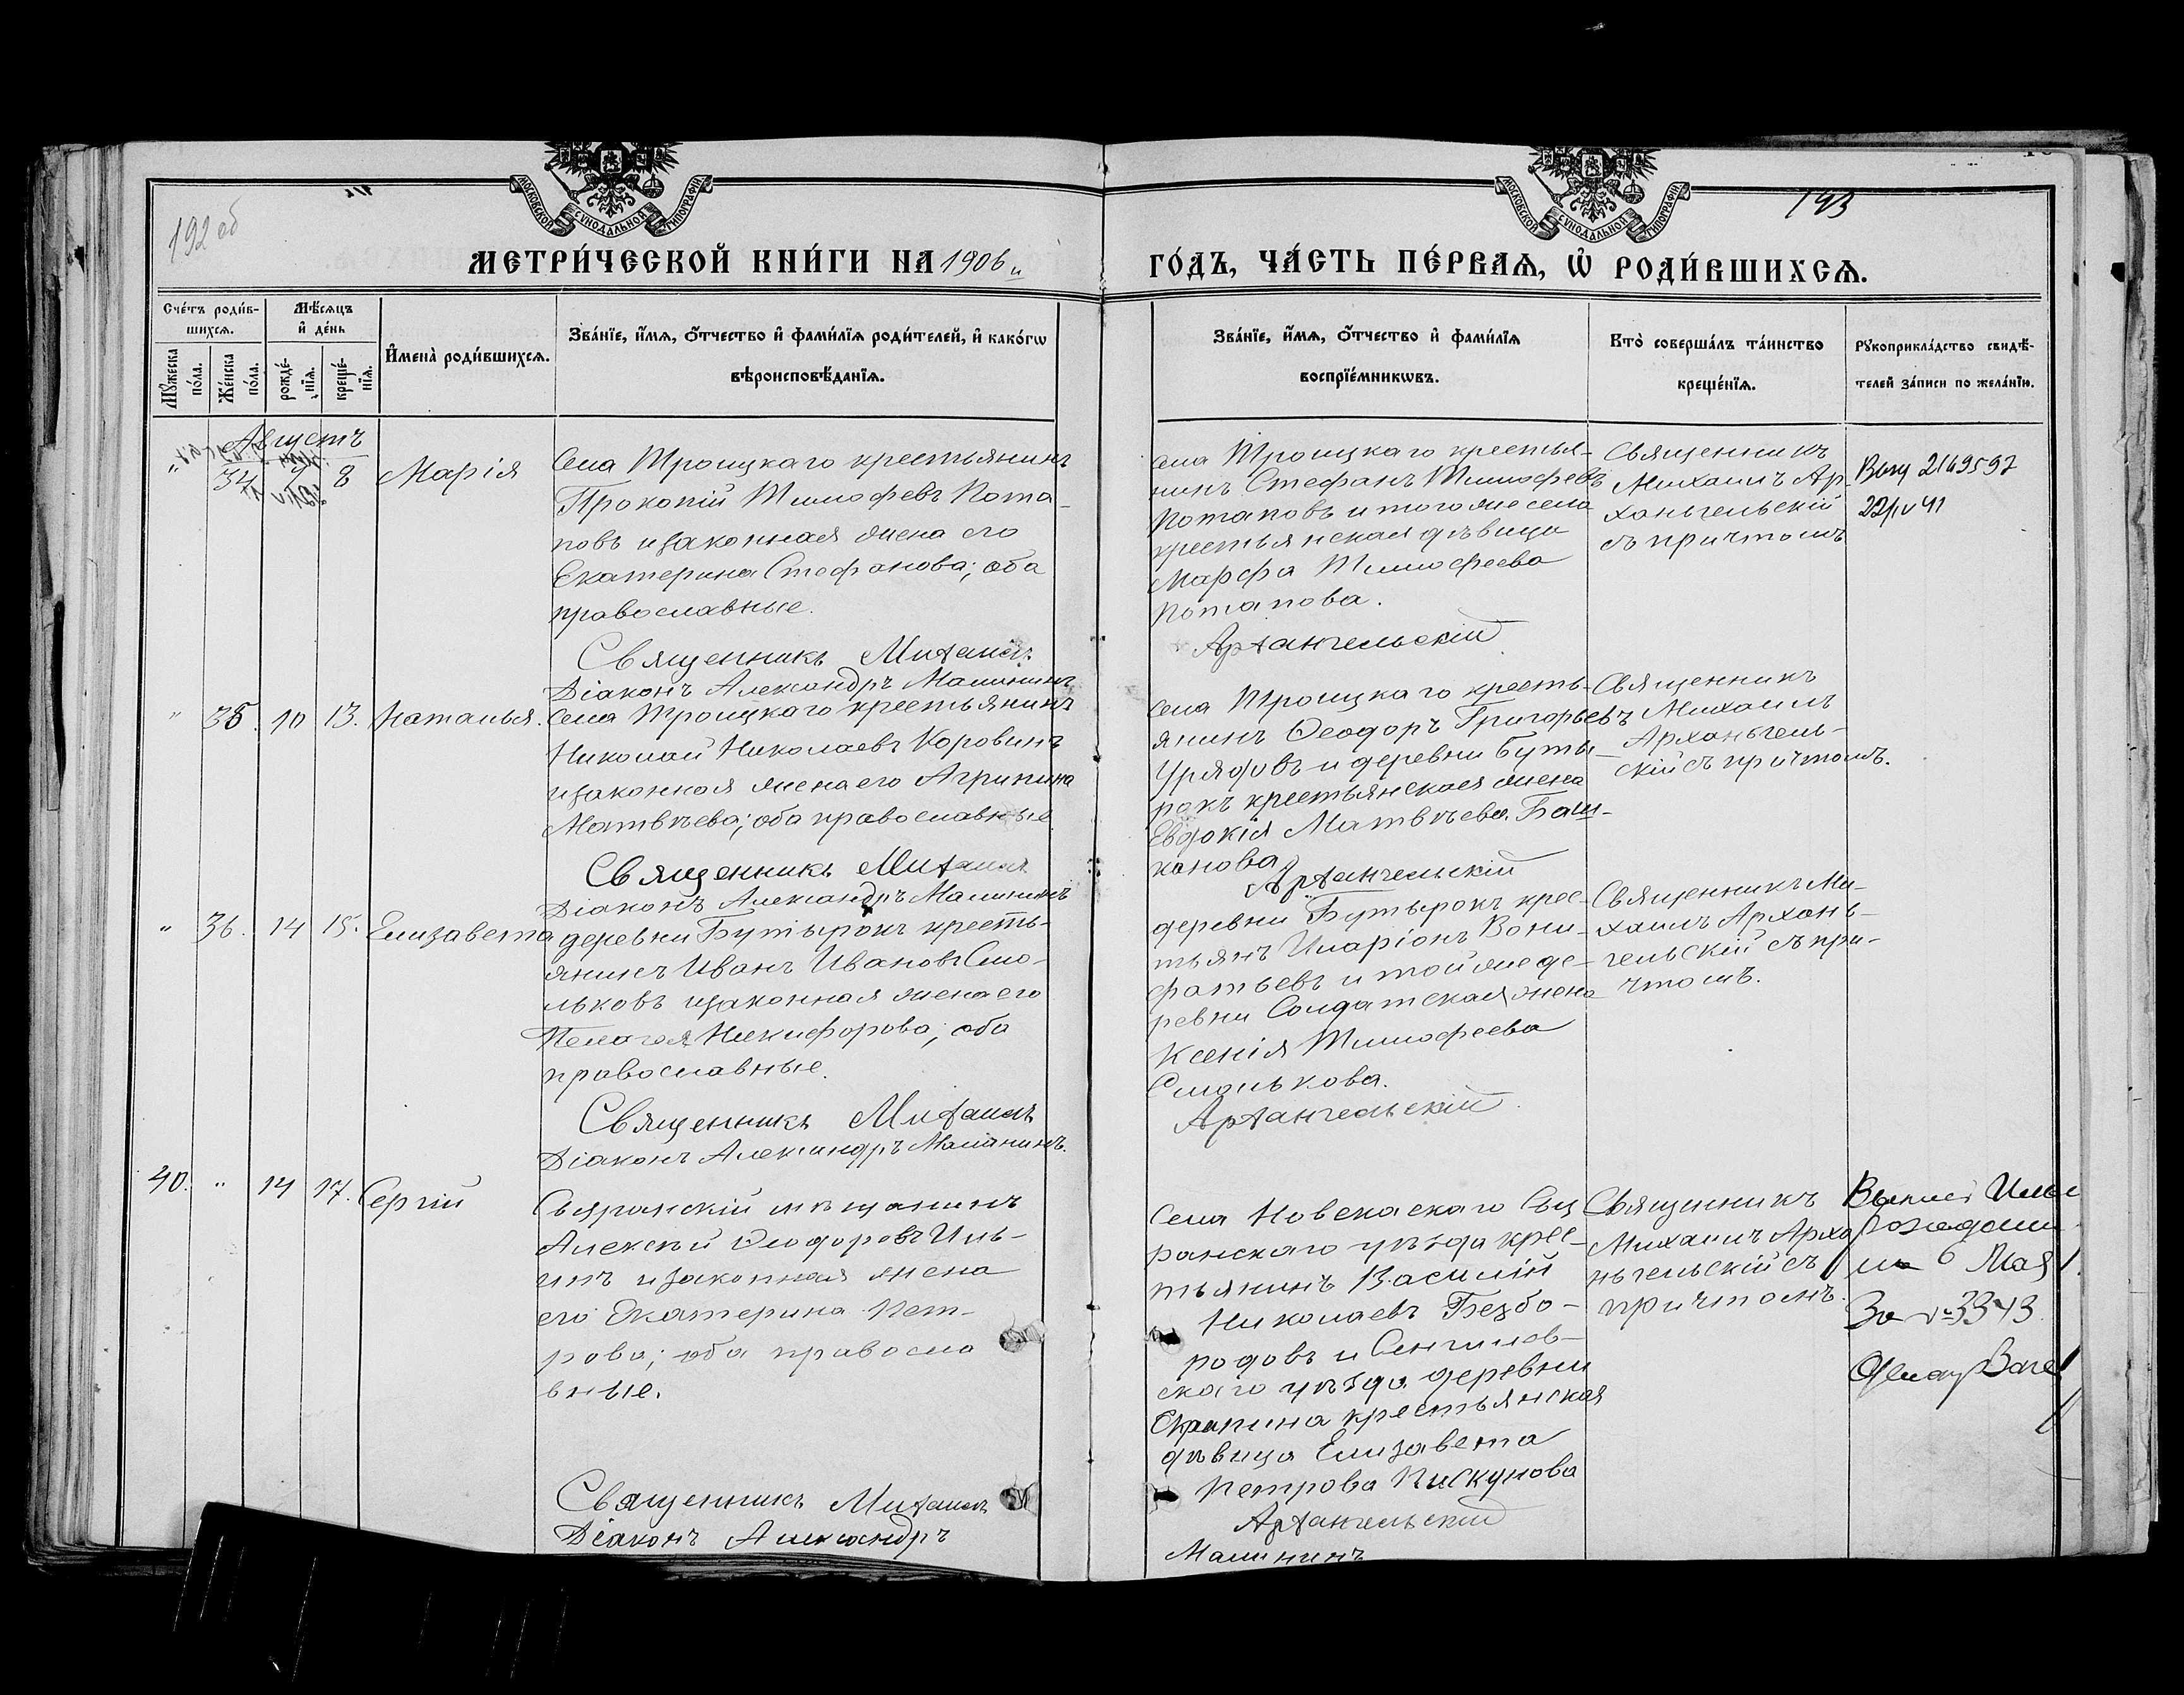 192 об
193
МОСКОВСКОЙ СѴНОДАЛЬНОЙ ТИПОГРАФІИ
МОСКОВСКОЙ СѴНОДАЛЬНОЙ ТИПОГРАФІИ
МЕТРИ́ЧЕСКОЙ КНИ́ГИ НА 1906 й
ГО́ДЪ, ЧА́СТЬ ПЕ́РВАѦ, Ѡ҆ РОДИ́ВШИХСѦ.
Сче́тъ роди́в-
шихсѧ.
Мꙋ́жеска по́ла.
Же́нска по́ла.
Мѣ́сѧцъ
и҆ де́нь
рожде́-нїѧ.
креще́-нїѧ.
И҆мена̀ роди́вшихсѧ.
Зва́нїе, и҆́мѧ, ѻ҆́тчество и҆ фами́лїѧ роди́телей, и҆ како́гѡ
вѣроисповѣ́данїѧ.
Зва́нїе, и҆́мѧ, ѻ҆́тчество и҆ фами́лїѧ
воспрїе́мникѡвъ.
Кто̀ соверша́лъ та́инство
креще́нїѧ.
Рꙋкоприкла́дство свидѣ́-
телей за́писи по жела́нїю.
Августъ
" 34 7 8 Марія
Села Троицкаго крестьянинъ
Прокопій Тимофевъ Пота-
повъ и законная жена его
Екатерина Стефанова; оба
православные.
Священникъ Михаилъ
Діаконъ Александръ Малининъ
Села Троицкаго крестья-
нинъ Стефанъ Тимофевъ
Потаповъ и того же села
крестьянская дѣвица
Марфа Тимофеева
Потапова.
Архангельскій
Священникъ
Михаилъ Ар-
хангельскій
съ причтомъ
2169597
22/IV 41
" 35. 10 13. Наталья.
Села Троицкаго крестьянинъ
Николай Николаевъ Коровинъ
и законная жена его Агрипина
Матвѣева; оба православные
Священникъ Михаилъ
Діаконъ Александръ Малининъ
Села Троицкаго кресть-
янинъ Ѳеодоръ Григорьевъ
Урядовъ и деревни Буты-
рокъ крестьянская жена
Евдокія Матвѣева Баш-
канова
Архангельскій
Священникъ
Михаилъ
Архангель-
скій съ причтомъ.
" 36. 14 15. Елизавета
деревни Бутырокъ кресть-
янинъ Иванъ Ивановъ Смо-
льковъ и законная жена его
Пелагея Никифорова; оба
православные.
Священникъ Михаилъ
Діаконъ Александръ Малининъ.
деревни Бутырокъ крес-
тьянъ Иларіонъ Вони-
фатьевъ и той же де-
ревни Солдатская жена
Ксенія Тимофеева
Смолькова.
Архангельскій
Священникъ Ми-
хаилъ Архан-
гельскій съ при-
чтомъ.
40. " 14 17. Сергій
Сызранскій мѣщанинъ
Алексѣй Ѳеодоровъ Иль-
инъ и законная жена
его Екатерина Пет-
рова; оба правосла
вные.
Священникъ Михаилъ
Діаконъ Александръ
Села Новскаскаго Сыз
ранскаго уѣзда крес-
тьянинъ Василій
Николаевъ Безбо-
родовъ и Сенгилев-
скаго уѣзда деревни
Скрипина крестьянская
дѣвица Елизавета
Петрова Пискунова
Архангельскій
Малининъ
Священникъ
Михаилъ Арха
нгельскій съ
причтомъ.
6 Мая
За № 3343